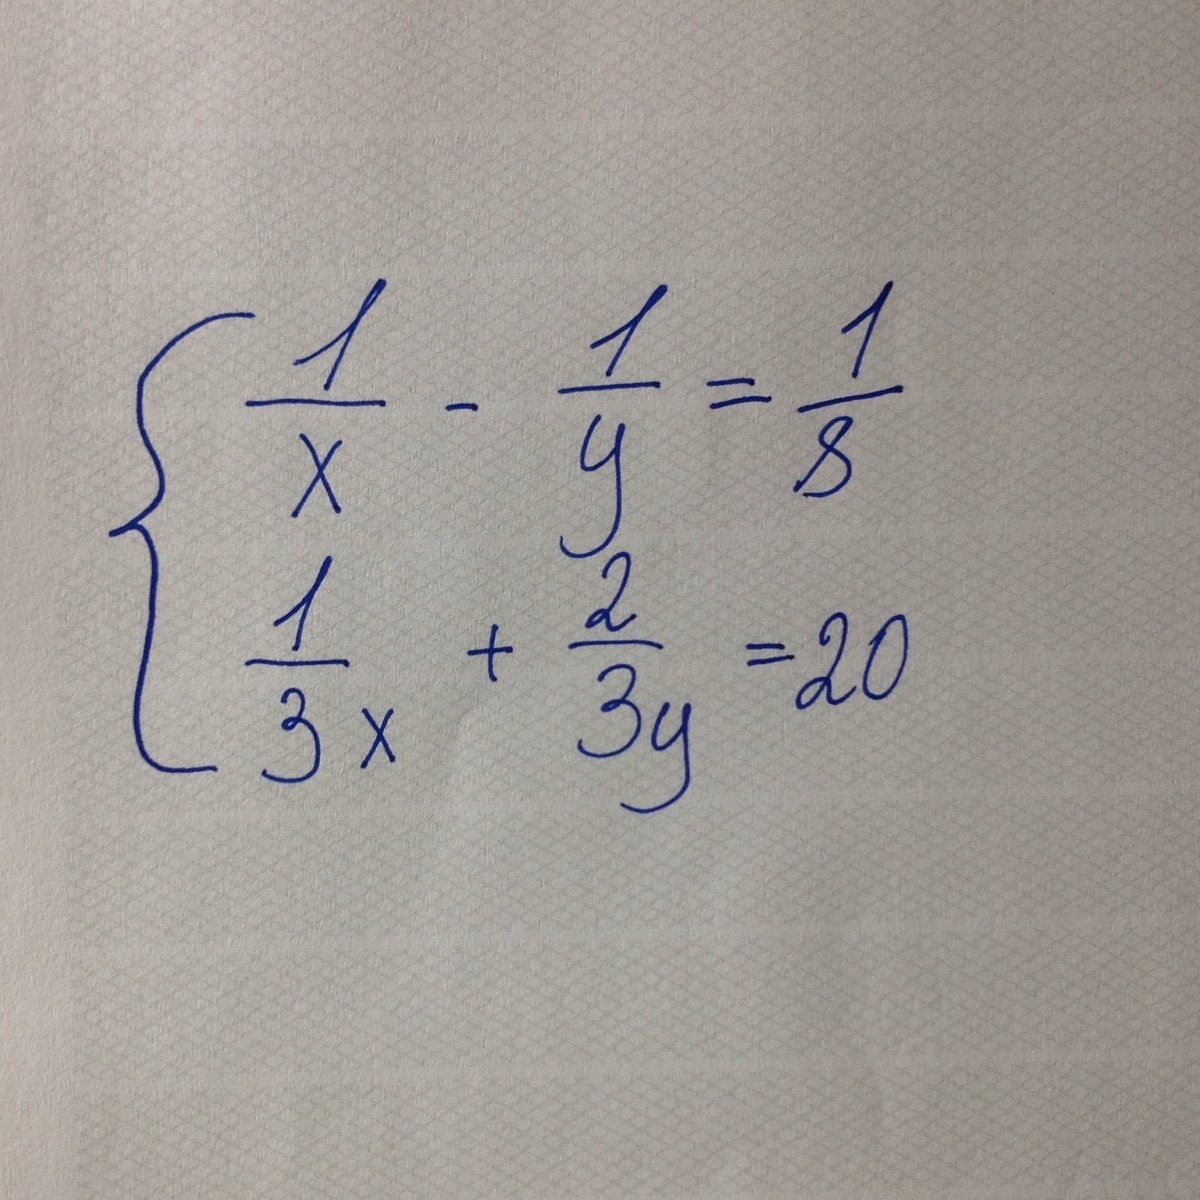 1/x - 1/y = 1/8
1/3x + 2/3y = 20